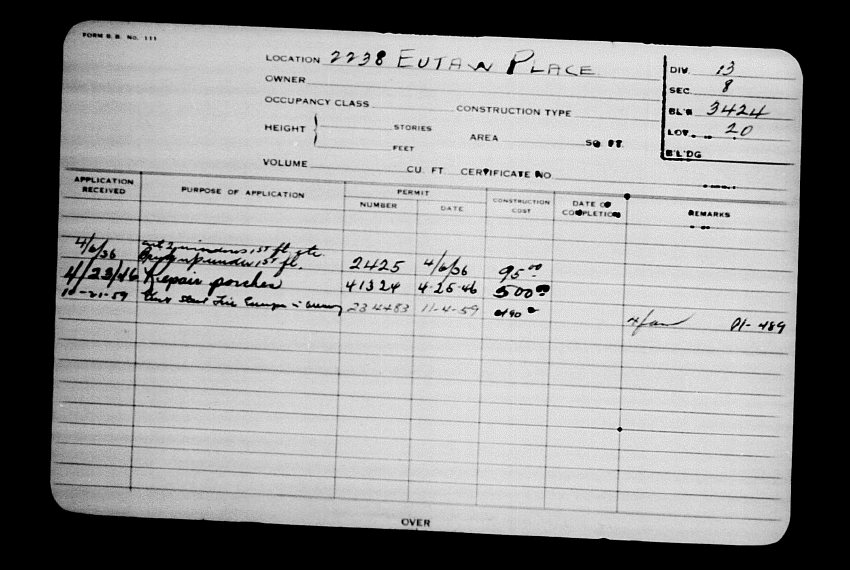 FORM B. B. No. 111
LOCATION 2238 EUTAW PLACE
OWNER
OCCUPANCY CLASS CONSTRUCTION TYPE
HEIGHT STORIES AREA SQ. FT.
FEET
VOLUME CU. FT. CERTIFICATE NO.
DIV. 13
SEC. 8
BL'K 3424
LOT 20
B'L'DG
APPLICATION RECEIVED PURPOSE OF APPLICATION PERMIT NUMBER DATE CONSTRUCTION COST DATE OF COMPLETION REMARKS
4/6/36 Cut 2 windows 1st fl. etc.
under 1st fl. 2425 4/6/36 95.00
4/23/46 Repair porches 41324 4-25-46 500.00
10-21-59 Steel Fire 234483 11-4-59
489
OVER